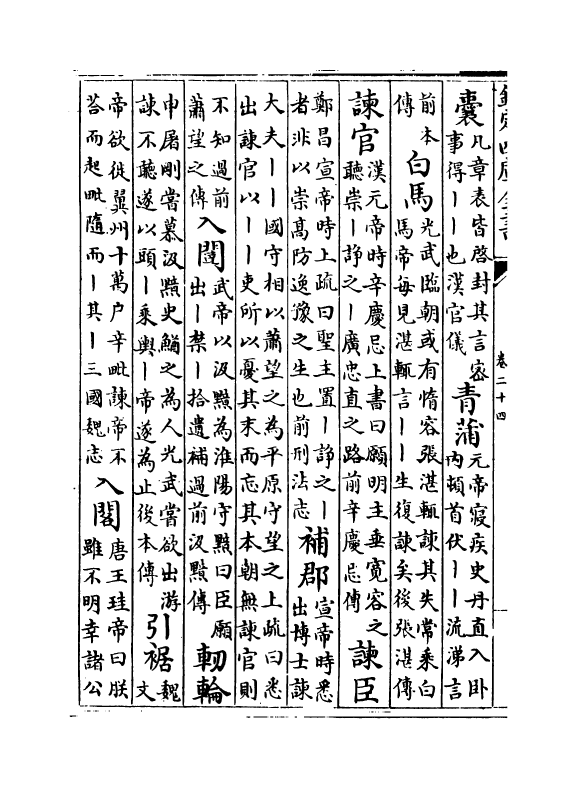 欽定四庫全書
卷二十四
囊
凡章表皆啓封其言宻
事得丨丨也漢官儀
青蒲
元帝寢疾史丹直入卧
内頓首伏丨丨流涕言
前本
傳
白馬
光武臨朝或有惰容張湛輒諫其失常乗白
馬帝每見湛輒言丨丨生復諫矣後張湛傳
諫官
漢元帝時辛慶忌上書曰願明主垂寛容之
聽崇丨諍之丨廣忠直之路前辛慶忌傳
諫臣
鄭昌宣帝時上疏曰聖主置丨諍之丨
者非以崇髙防逸豫之生也前刑法志
補郡
宣帝時悉
出博士諫
大夫丨丨國守相以蕭望之為平原守望之上疏曰悉
出諫官以丨丨吏所以憂其末而忘其本朝無諫官則
不知過前
蕭望之傳
入闥
武帝以汲黯為淮陽守黯曰臣願
出丨禁丨拾遺補過前汲黯傳
軔輪
申屠剛嘗慕汲黯史鰌之為人光武嘗欲出游
諫不聽遂以頭丨乗輿丨帝遂為止後本傳
引裾
魏
文
帝欲徙冀州十萬户辛毗諫帝不
荅而起毗隨而丨其丨三國魏志
入閣
唐王珪帝曰朕
雖不明幸諸公